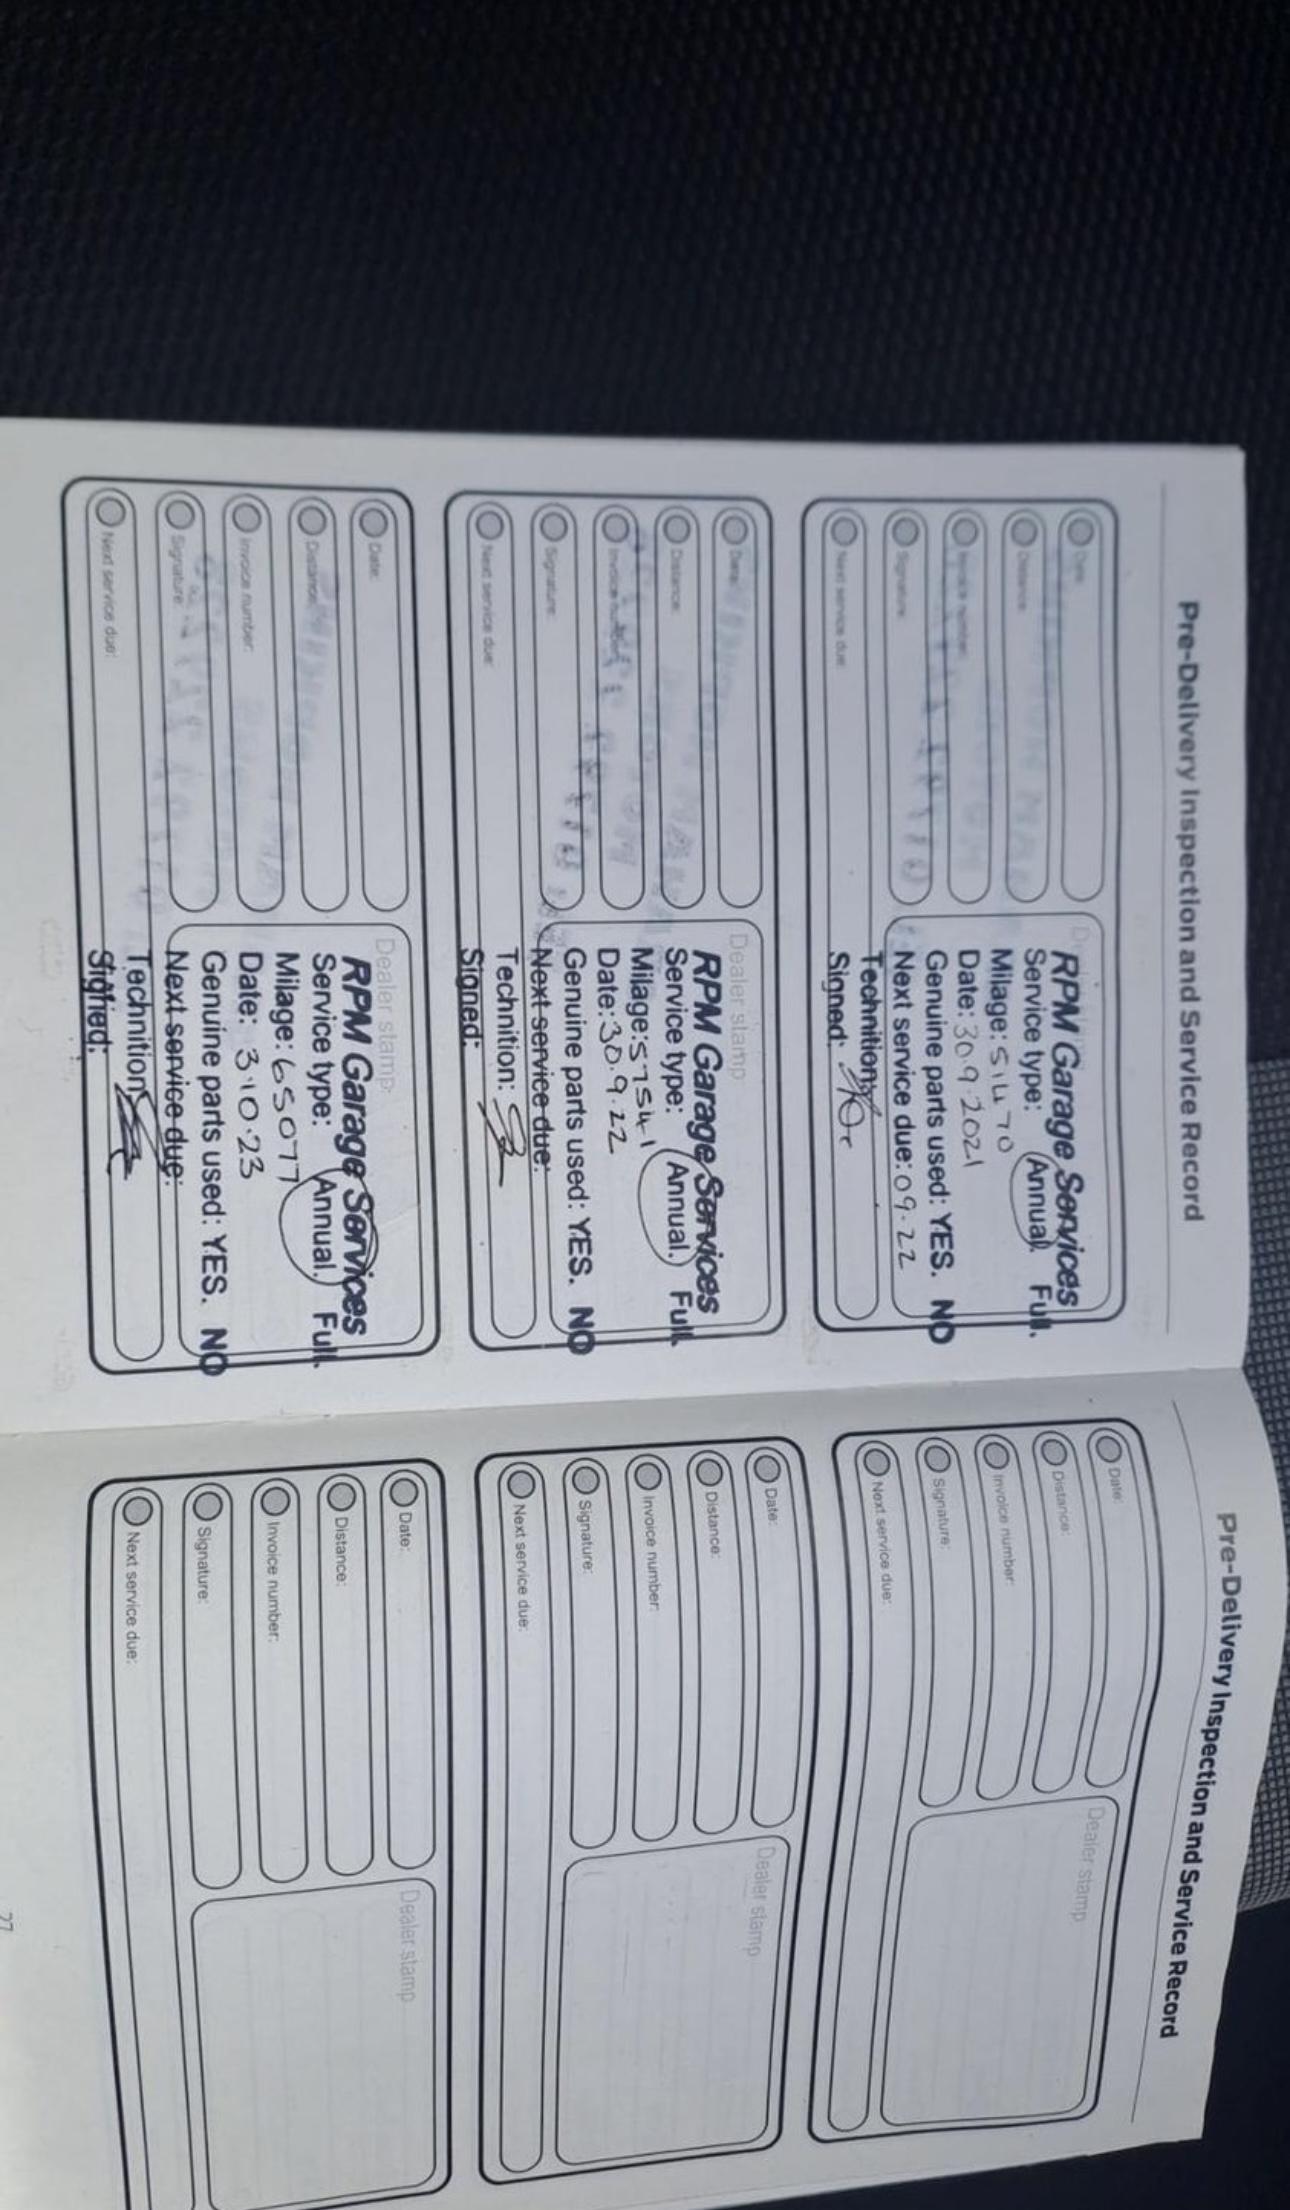 Pre-Delivery Inspection and Service Record
Date:
Distance:
Invoice number:
Signature:
Next service due:
RPM Garage Services
Service type: Annual. Full.
Milage: 51470
Date: 30.9.2021
Genuine parts used: YES. NO
Next service due: 09.22
Technition:
Signed:
Date:
Distance:
Invoice number:
Signature:
Next service due:
Dealer stamp
RPM Garage Services
Service type: Annual. Full.
Milage: 57541
Date: 30.9.22
Genuine parts used: YES. NO
Next service due:
Technition:
Signed:
Date:
Distance:
Invoice number:
Signature:
Next service due:
Dealer stamp:
RPM Garage Services
Service type: Annual. Full.
Milage: 65077
Date: 3.10.23
Genuine parts used: YES. NO
Next service due:
Technition:
Signed:
Pre-Delivery Inspection and Service Record
Date:
Distance:
Invoice number:
Signature:
Next service due:
Dealer stamp
Date:
Distance:
Invoice number:
Signature:
Next service due:
Dealer stamp
Date:
Distance:
Invoice number:
Signature:
Next service due:
Dealer stamp
27